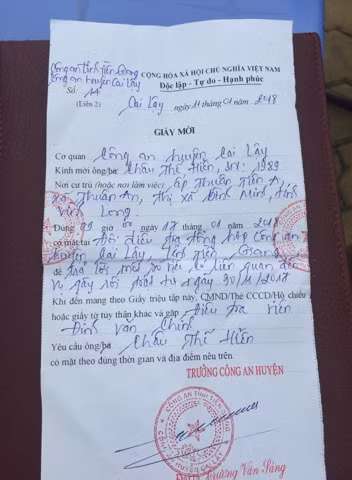 Công an tỉnh Tiền Giang
Công an huyện Cai Lậy
Số: 11
(Liên 2)
CỘNG HÒA XÃ HỘI CHỦ NGHĨA VIỆT NAM
Độc lập - Tự do - Hạnh phúc
Cai Lậy, ngày 11 tháng 01 năm 2018
GIẤY MỜI
Cơ quan Công an huyện Cai Lậy
Kính mời ông/bà: Châu Thị Hiền, SN: 1989
Nơi cư trú (hoặc nơi làm việc) ấp Thuận Tiến A,
xã Thuận An, thị xã Bình Minh, tỉnh
Vĩnh Long.
Đúng giờ 00 ngày 17 tháng 01 năm 2018
có mặt tại Đội điều tra tổng hợp Công an
huyện Cai Lậy, tỉnh Tiền Giang
để trả lời một số nội liên quan đến
vụ gây rối trật tự ngày 30/11/2017
Khi đến mang theo Giấy triệu tập này, CMND/Thẻ CCCD/Hộ chiếu
hoặc giấy tờ tùy thân khác và gặp điều tra viên
Đinh Văn Chính
Yêu cầu ông/bà Châu Thị Hiền
có mặt theo đúng thời gian và địa điểm nêu trên.
TRƯỞNG CÔNG AN HUYỆN
CÔNG AN TỈNH TIỀN GIANG
CÔNG AN HUYỆN CAI LẬY
Trương Văn Sáng